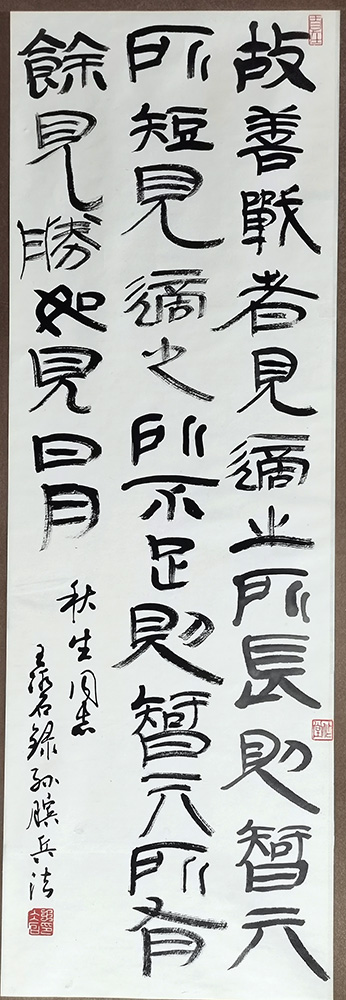 故善戰者見適之所長則智亓
所短見適之所不足則智亓所有
餘見勝如見日月
秋生同志
王石錄孫臏兵法